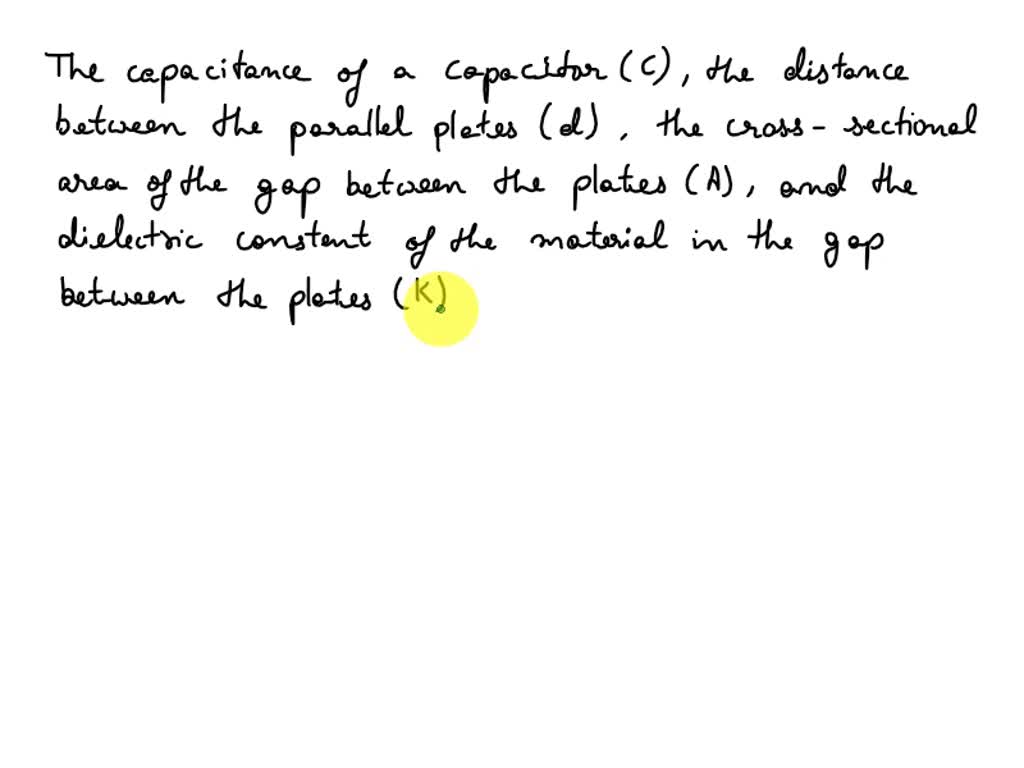 The capacitance of a capacitor (C), the distance
between the parallel plates (d), the cross-sectional
area of the gap between the plates (A), and the
dielectric constant of the material in the gap
between the plates (K)